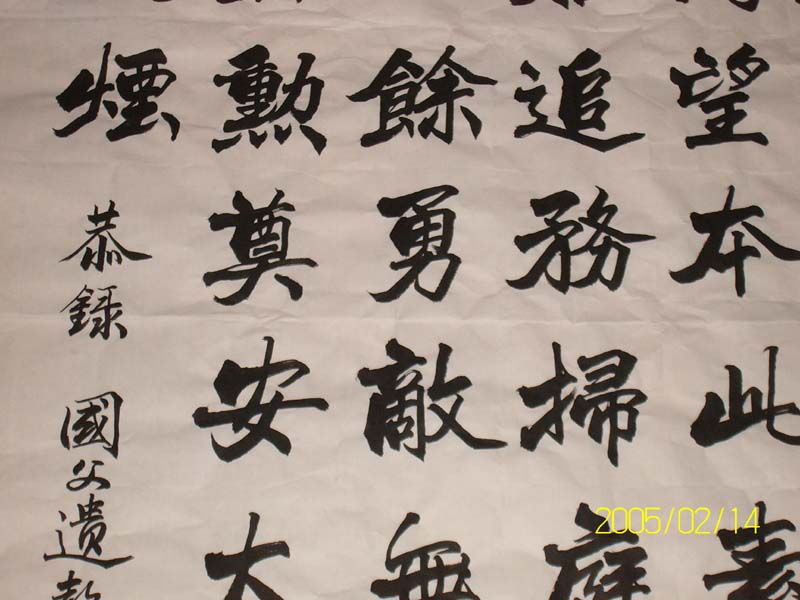 望本此素
追務掃庭
餘勇敵無
勳奠安大
煙
恭録 國父遺
2005/02/14